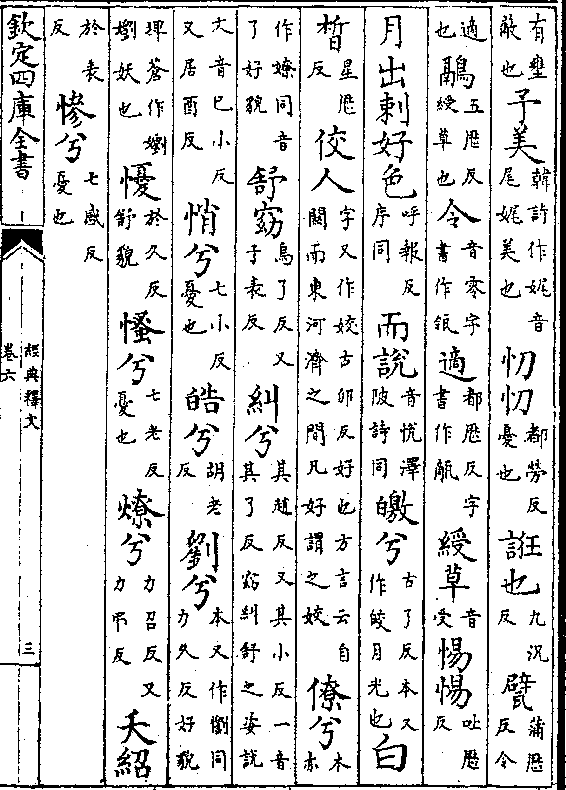 有壅敵也予美韓詩作娓音尾娓美也忉忉都勞反憂也誑也九況反甓蒲歷反令
適也鷊五歷反綬草也令音零字書作瓴適都歷反字書作甋綬草音受惕惕吐歷反
月出刺好色呼報反序同而說音悅澤陂詩同皦兮古了反本又作皎月光也白
晳星歷反佼人字又作姣古卯反好也方言云自關而東河濟之間凡好謂之姣僚兮本亦
作嫽同音了好貌舒窈烏了反又于表反糾兮其趙反又其小反一音其了反窈糾舒之姿說
文音巳小反又居酉反悄兮七小反憂也皓兮胡老反劉兮本又作懰同力久反好貌
埤蒼作嬼嬼妖也懮於久反舒貌慅兮七老反憂也燎兮力召反又力弔反夭紹
於表反慘兮七感反憂也
欽定四庫全書
經典釋文
卷六
三